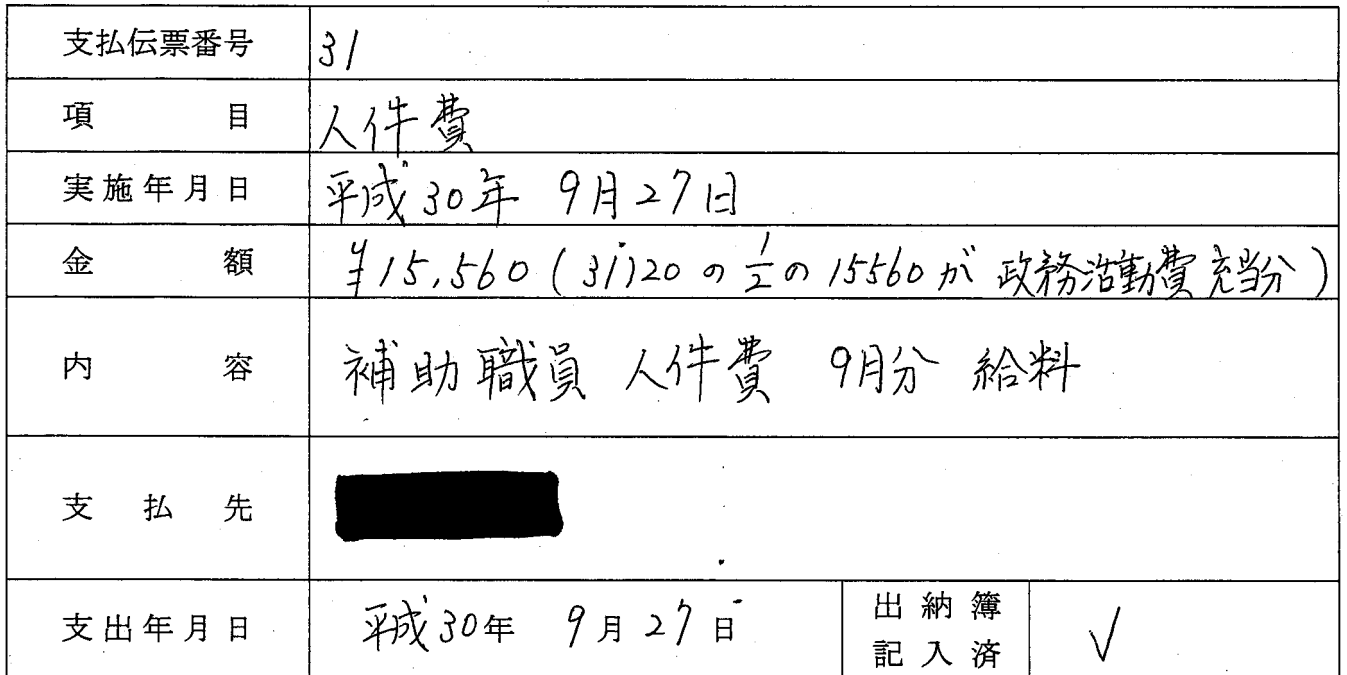 支払伝票番号 31
項目 人件費
実施年月日 平成30年 9月27日
金額 ¥15,560(31,120の1/2の15560が 政務活動費充当分)
内容 補助職員 人件費 9月分 給料
支払先
支出年月日 平成30年 9月27日 出納簿記入済 ✓